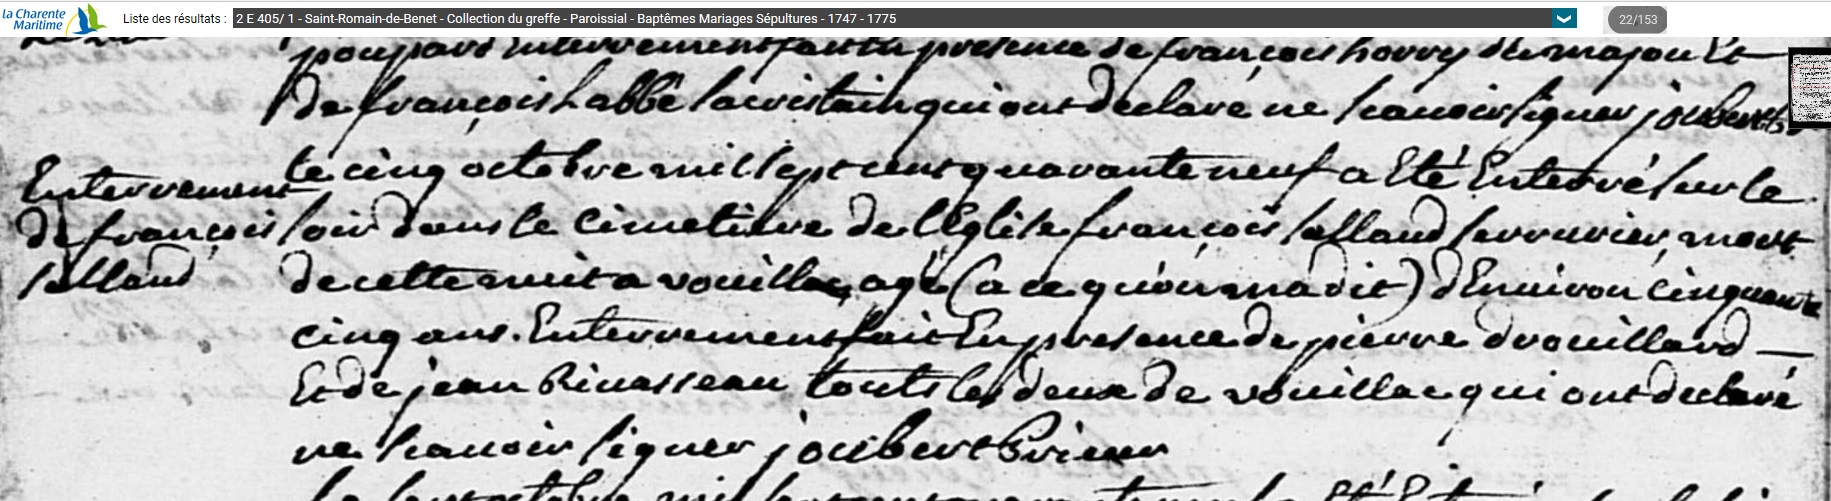 la Charente
Maritime
Liste des résultats :
2 E 405/ 1 - Saint-Romain-de-Benet - Collection du greffe - Paroissial - Baptêmes Mariages Sépultures - 1747 - 1775
22/153
poupard Enterrement fait En presence de françois horry du majou Et
de françois Labbé sacristain qui ont declaré ne scauoir signer joubert
Enterrement
de françois
salland
le cinq octobre mil sept cent quarante neuf a Eté Enterré sur le
soir dans le cimetiere de l'Eglise françois salland serrurier mort
de cette nuit a vouillac, agé (a ce qu'on m'a dit) d'Enuiron cinquante
cinq ans. Enterrement fait En presence de pierre drouillard
Et de jean Riuasseau touts les deux de vouillac qui ont declaré
ne scauoir signer joubert Prieur
octobre mil sept cent